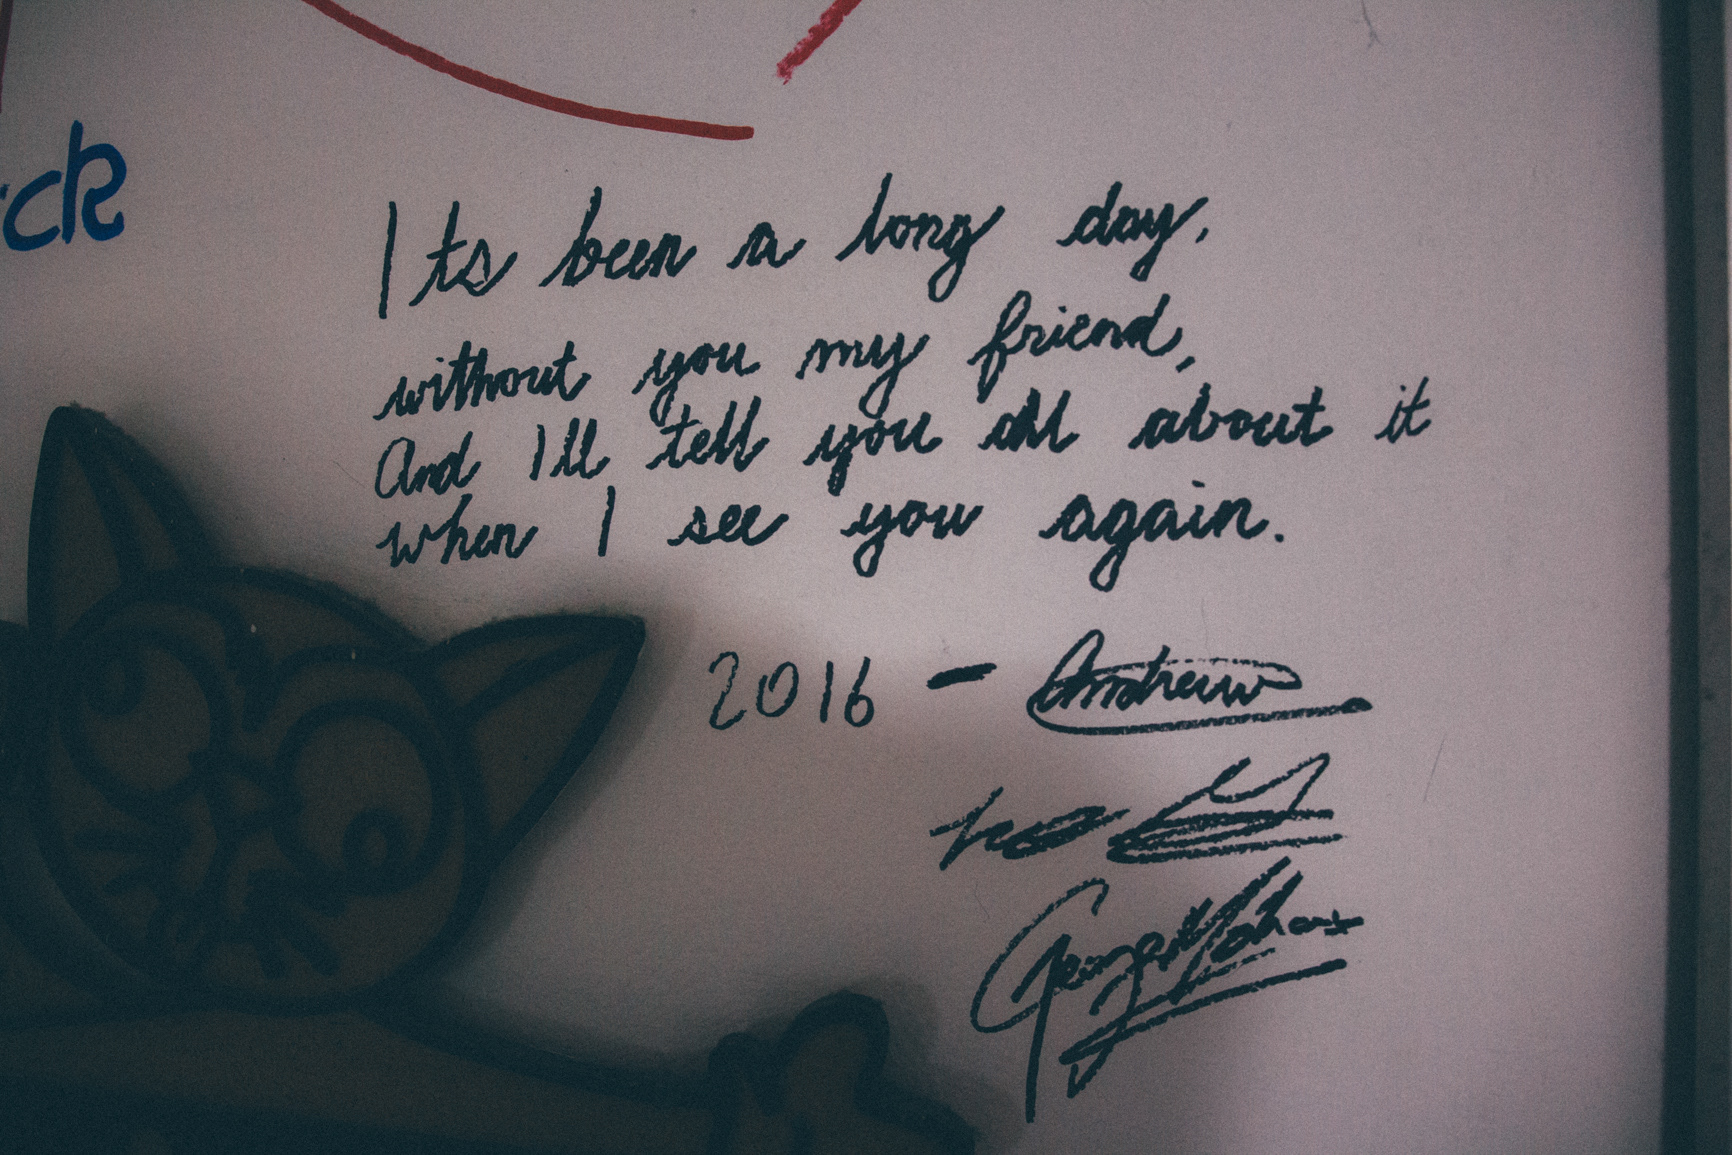 ck
Its been a long day,
without you my friend,
And Ill tell you all about it
when I see you again.
2016 - Andrew